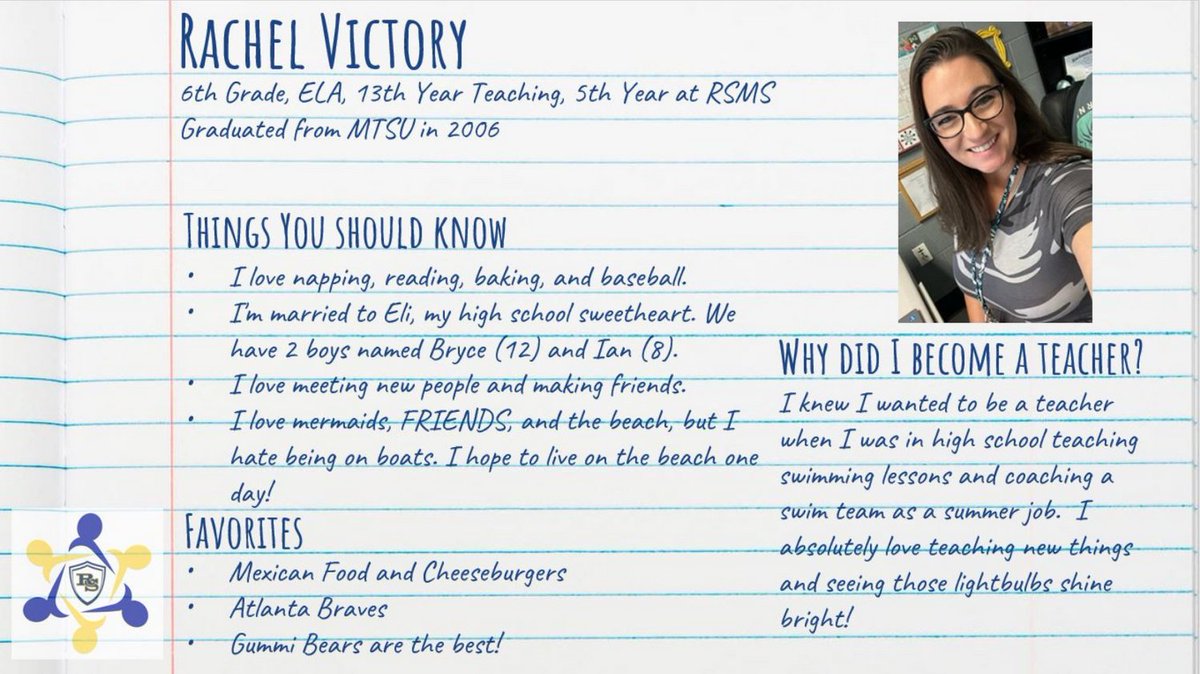 RACHEL VICTORY
6th Grade, ELA, 13th Year Teaching, 5th Year at RSMS
Graduated from MTSU in 2006
THINGS YOU SHOULD KNOW
• I love napping, reading, baking, and baseball.
• I'm married to Eli, my high school sweetheart. We
have 2 boys named Bryce (12) and Ian (8).
• I love meeting new people and making friends.
• I love mermaids, FRIENDS, and the beach, but I
hate being on boats. I hope to live on the beach one
day!
FAVORITES
• Mexican Food and Cheeseburgers
• Atlanta Braves
• Gummi Bears are the best!
WHY DID I BECOME A TEACHER?
I knew I wanted to be a teacher
when I was in high school teaching
swimming lessons and coaching a
swim team as a summer job. I
absolutely love teaching new things
and seeing those lightbulbs shine
bright!
RS